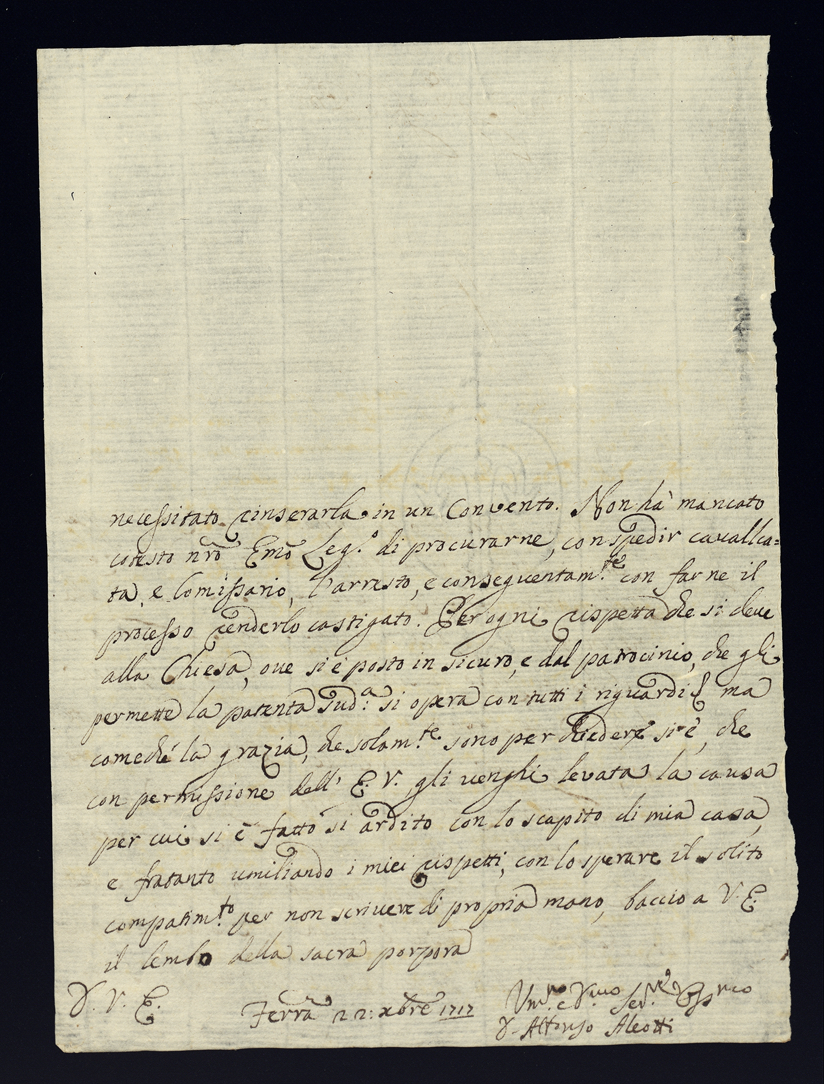 necessitato rinserarla in un Convento. Non hà mancato
cotesto nrô Emô Leg.º di procurarne, con spedir cavallca=
ta, e Comissario, l'arresto, e conseguentam.te con farne il
processo renderlo castigato. Per ogni rispetto che si deve
alla Chiesa, oue si è posto in sicuro, e dal patrocinio, che gli
permette la patenta sud.a si opera con tutti i riguardi, ma
comechè la grazia, che solam.te sono per chiedere si è, che
con permissione dell' E. V. gli venghi levata la causa
per cui si è fatto sì ardito con lo scapito di mia casa,
e fratanto umiliando i miei rispetti, con lo sperare il solito
compatim.to per non scrivere di propria mano, baccio a V. E.
il lembo della sacra porpora
D. V. E.
Ferra 22: Xbre 1717
Um.mo e D.mo Ser.re
D. Alfonso Aleotti